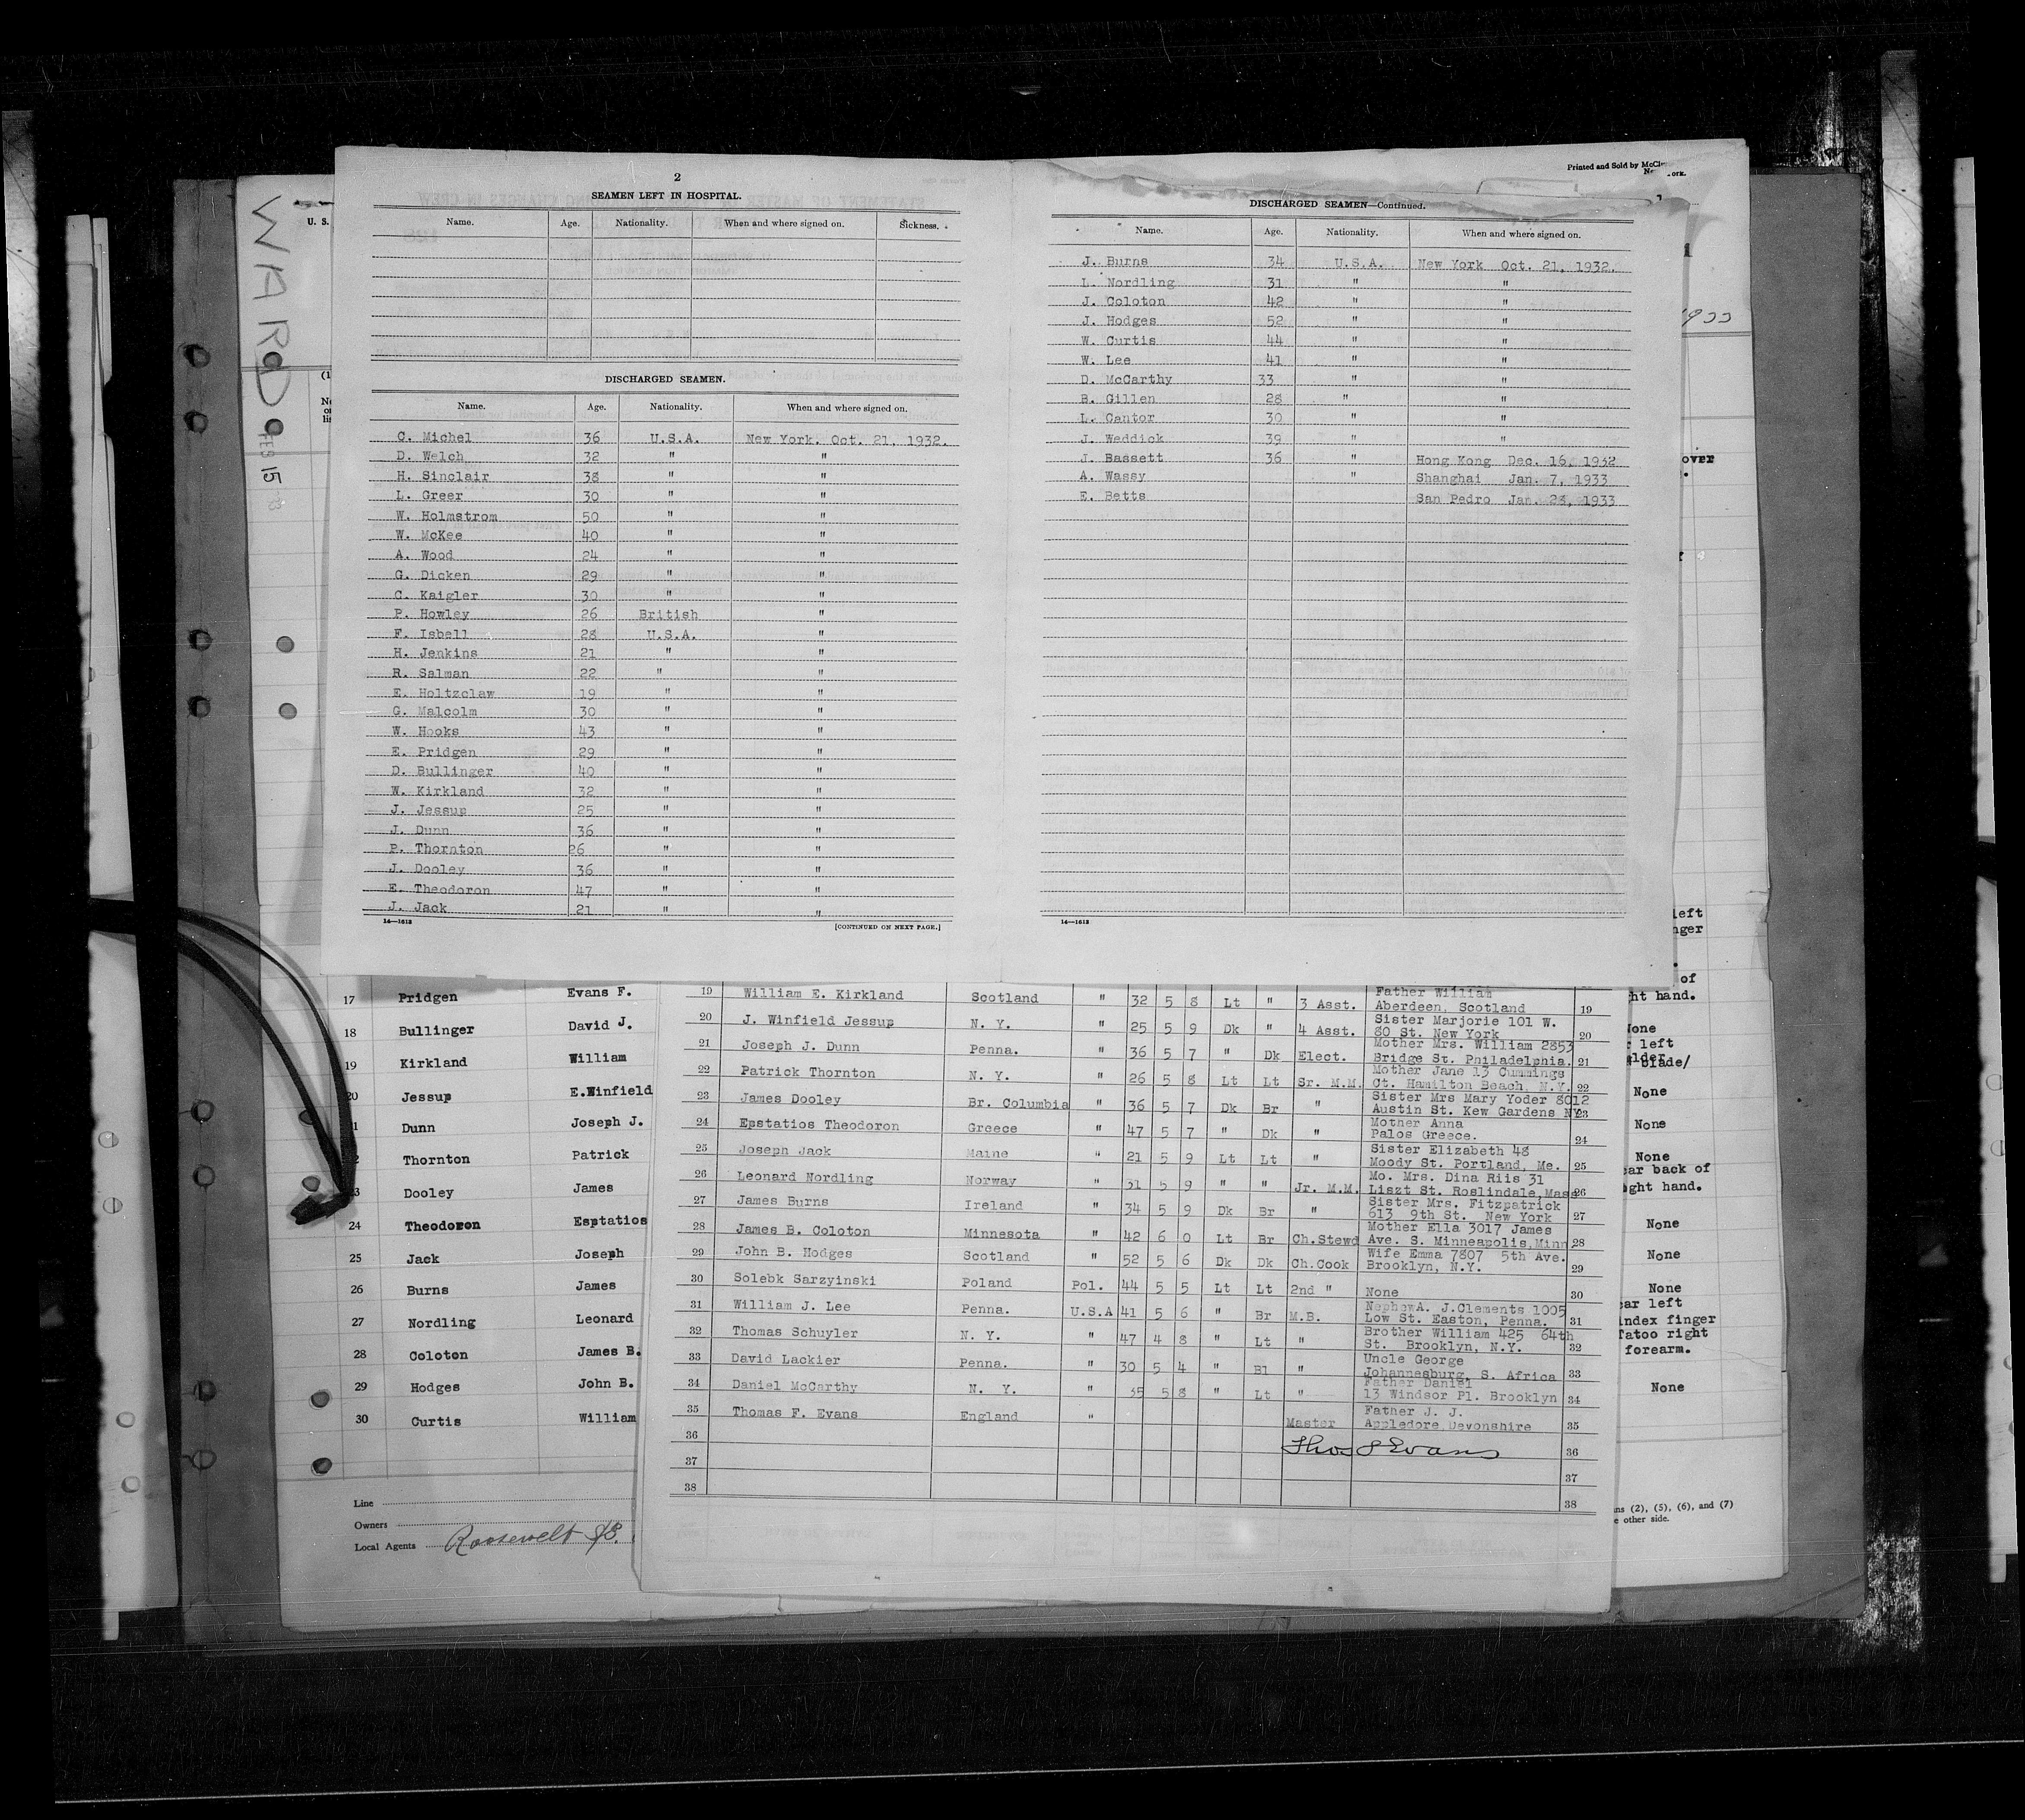 WARD
FEB 15
U. S.
2
SEAMEN LEFT IN HOSPITAL.
Name. Age. Nationality. When and where signed on. Sickness.
DISCHARGED SEAMEN.
Name. Age. Nationality. When and where signed on.
C. Michel 36 U.S.A. New York. Oct. 21, 1932.
D. Welch 32 " "
H. Sinclair 38 " "
L. Greer 30 " "
W. Holmstrom 50 " "
W. McKee 40 " "
A. Wood 24 " "
G. Dicken 29 " "
C. Kaigler 30 " "
P. Howley 26 British "
F. Isbell 28 U.S.A. "
H. Jenkins 21 " "
R. Salman 22 " "
E. Holtzclaw 19 " "
G. Malcolm 30 " "
W. Hooks 43 " "
E. Pridgen 29 " "
D. Bullinger 40 " "
W. Kirkland 32 " "
J. Jessup 25 " "
J. Dunn 36 " "
P. Thornton 26 " "
J. Dooley 36 " "
E. Theodoron 47 " "
J. Jack 21 " "
14—1613
[CONTINUED ON NEXT PAGE.]
Printed and Sold by
DISCHARGED SEAMEN—Continued.
Name. Age. Nationality. When and where signed on.
J. Burns 34 U.S.A. New York Oct. 21, 1932.
L. Nordling 31 " "
J. Coloton 42 " "
J. Hodges 52 " "
W. Curtis 44 " "
W. Lee 41 " "
D. McCarthy 33 " "
B. Gillen 28 " "
L. Cantor 30 " "
J. Weddick 39 " "
J. Bassett 36 " Hong Kong Dec. 16, 1932
A. Wassy " Shanghai Jan. 7, 1933
E. Betts San Pedro Jan. 28, 1933
14—1613
17 Pridgen Evans F.
18 Bullinger David J.
19 Kirkland William
20 Jessup E.Winfield
Dunn Joseph J.
Thornton Patrick
Dooley James
24 Theodoron Esptatios
25 Jack Joseph
26 Burns James
27 Nordling Leonard
28 Coloton James B.
29 Hodges John B.
30 Curtis William
Line
Owners
Local Agents Roosevelt SS.
19 William E. Kirkland Scotland " 32 5 8 Lt " 3 Asst. Father William
Aberdeen, Scotland 19
20 J. Winfield Jessup N. Y. " 25 5 9 Dk " 4 Asst. Sister Marjorie 101 W.
80 St. New York 20
21 Joseph J. Dunn Penna. " 36 5 7 " Dk Elect. Mother Mrs. William 2853
Bridge St. Philadelphia. 21
22 Patrick Thornton N. Y. " 26 5 8 Lt Lt Sr. M.M. Mother Jane 13 Cummings
Ct. Hamilton Beach, N.Y. 22
23 James Dooley Br. Columbia " 36 5 7 Dk Br " Sister Mrs Mary Yoder 8012
Austin St. Kew Gardens NY 23
24 Epstatios Theodoron Greece " 47 5 7 " Dk " Mother Anna
Palos Greece. 24
25 Joseph Jack Maine " 21 5 9 Lt Lt " Sister Elizabeth 48
Moody St. Portland, Me. 25
26 Leonard Nordling Norway " 31 5 9 " " Jr. M.M. Mo. Mrs. Dina Riis 31
Liszt St. Roslindale, Mass 26
27 James Burns Ireland " 34 5 9 Dk Br " Sister Mrs. Fitzpatrick
613 9th St. New York 27
28 James B. Coloton Minnesota " 42 6 0 Lt Br Ch.Stewd Mother Ella 3017 James
Ave. S. Minneapolis, Minn 28
29 John B. Hodges Scotland " 52 5 6 Dk Dk Ch.Cook Wife Emma 7807 5th Ave.
Brooklyn, N.Y. 29
30 Solebk Sarzyinski Poland Pol. 44 5 5 Lt Lt 2nd " None 30
31 William J. Lee Penna. U.S.A 41 5 6 " Br M.B. NephewA. J.Clements 1005
Low St. Easton, Penna. 31
32 Thomas Schuyler N. Y. " 47 4 8 " Lt " Brother William 425 64th
St. Brooklyn, N.Y. 32
33 David Lackier Penna. " 30 5 4 " Bl " Uncle George
Johannesburg, S. Africa 33
34 Daniel McCarthy N. Y. " 35 5 8 " Lt " Father Daniel
13 Windsor Pl. Brooklyn 34
35 Thomas F. Evans England " Master Father J. J.
Appledore Devonshire 35
36 Thos F Evans 36
37 37
38 38
over
left
of
ht hand.
None
left
blade/
None
None
None
ar back of
ght hand.
None
None
None
ar left
index finger
Tatoo right
forearm.
None
(2), (5), (6), and (7)
other side.